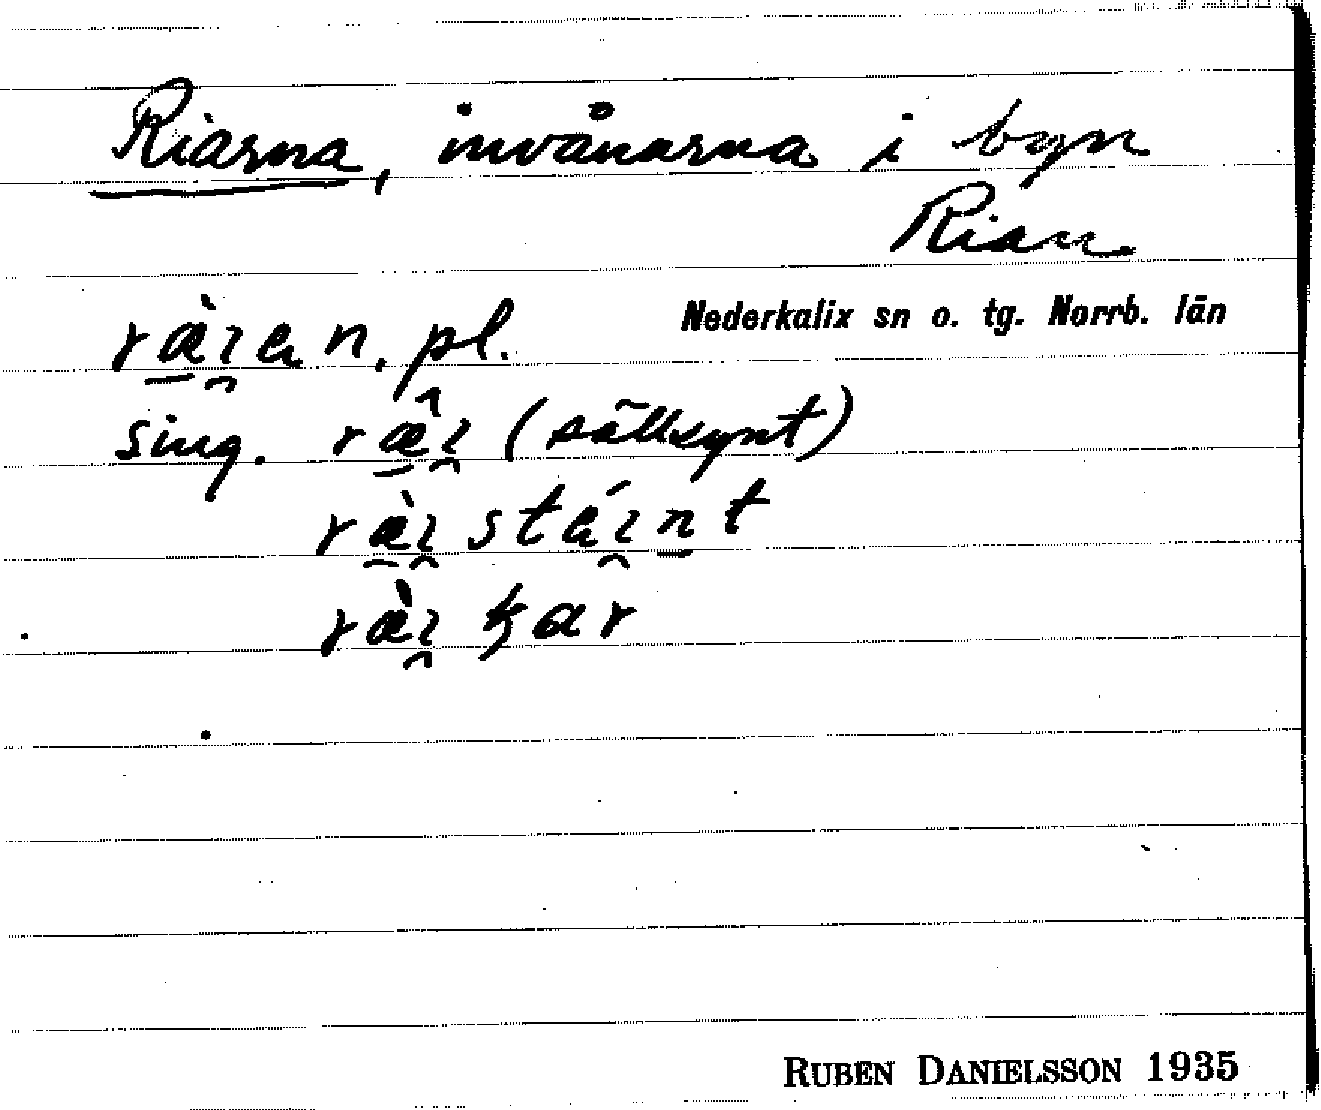 Riarna, invånarna i byn
Rian
Nederkalix sn o. tg. Norrb. län
ræ̀ɩan, pl.
sing. ræ̂ɩ (sällsynt)
ræ̀ɩstáɩnt
ræ̀ɩ
RUBEN DANIELSSON 1935